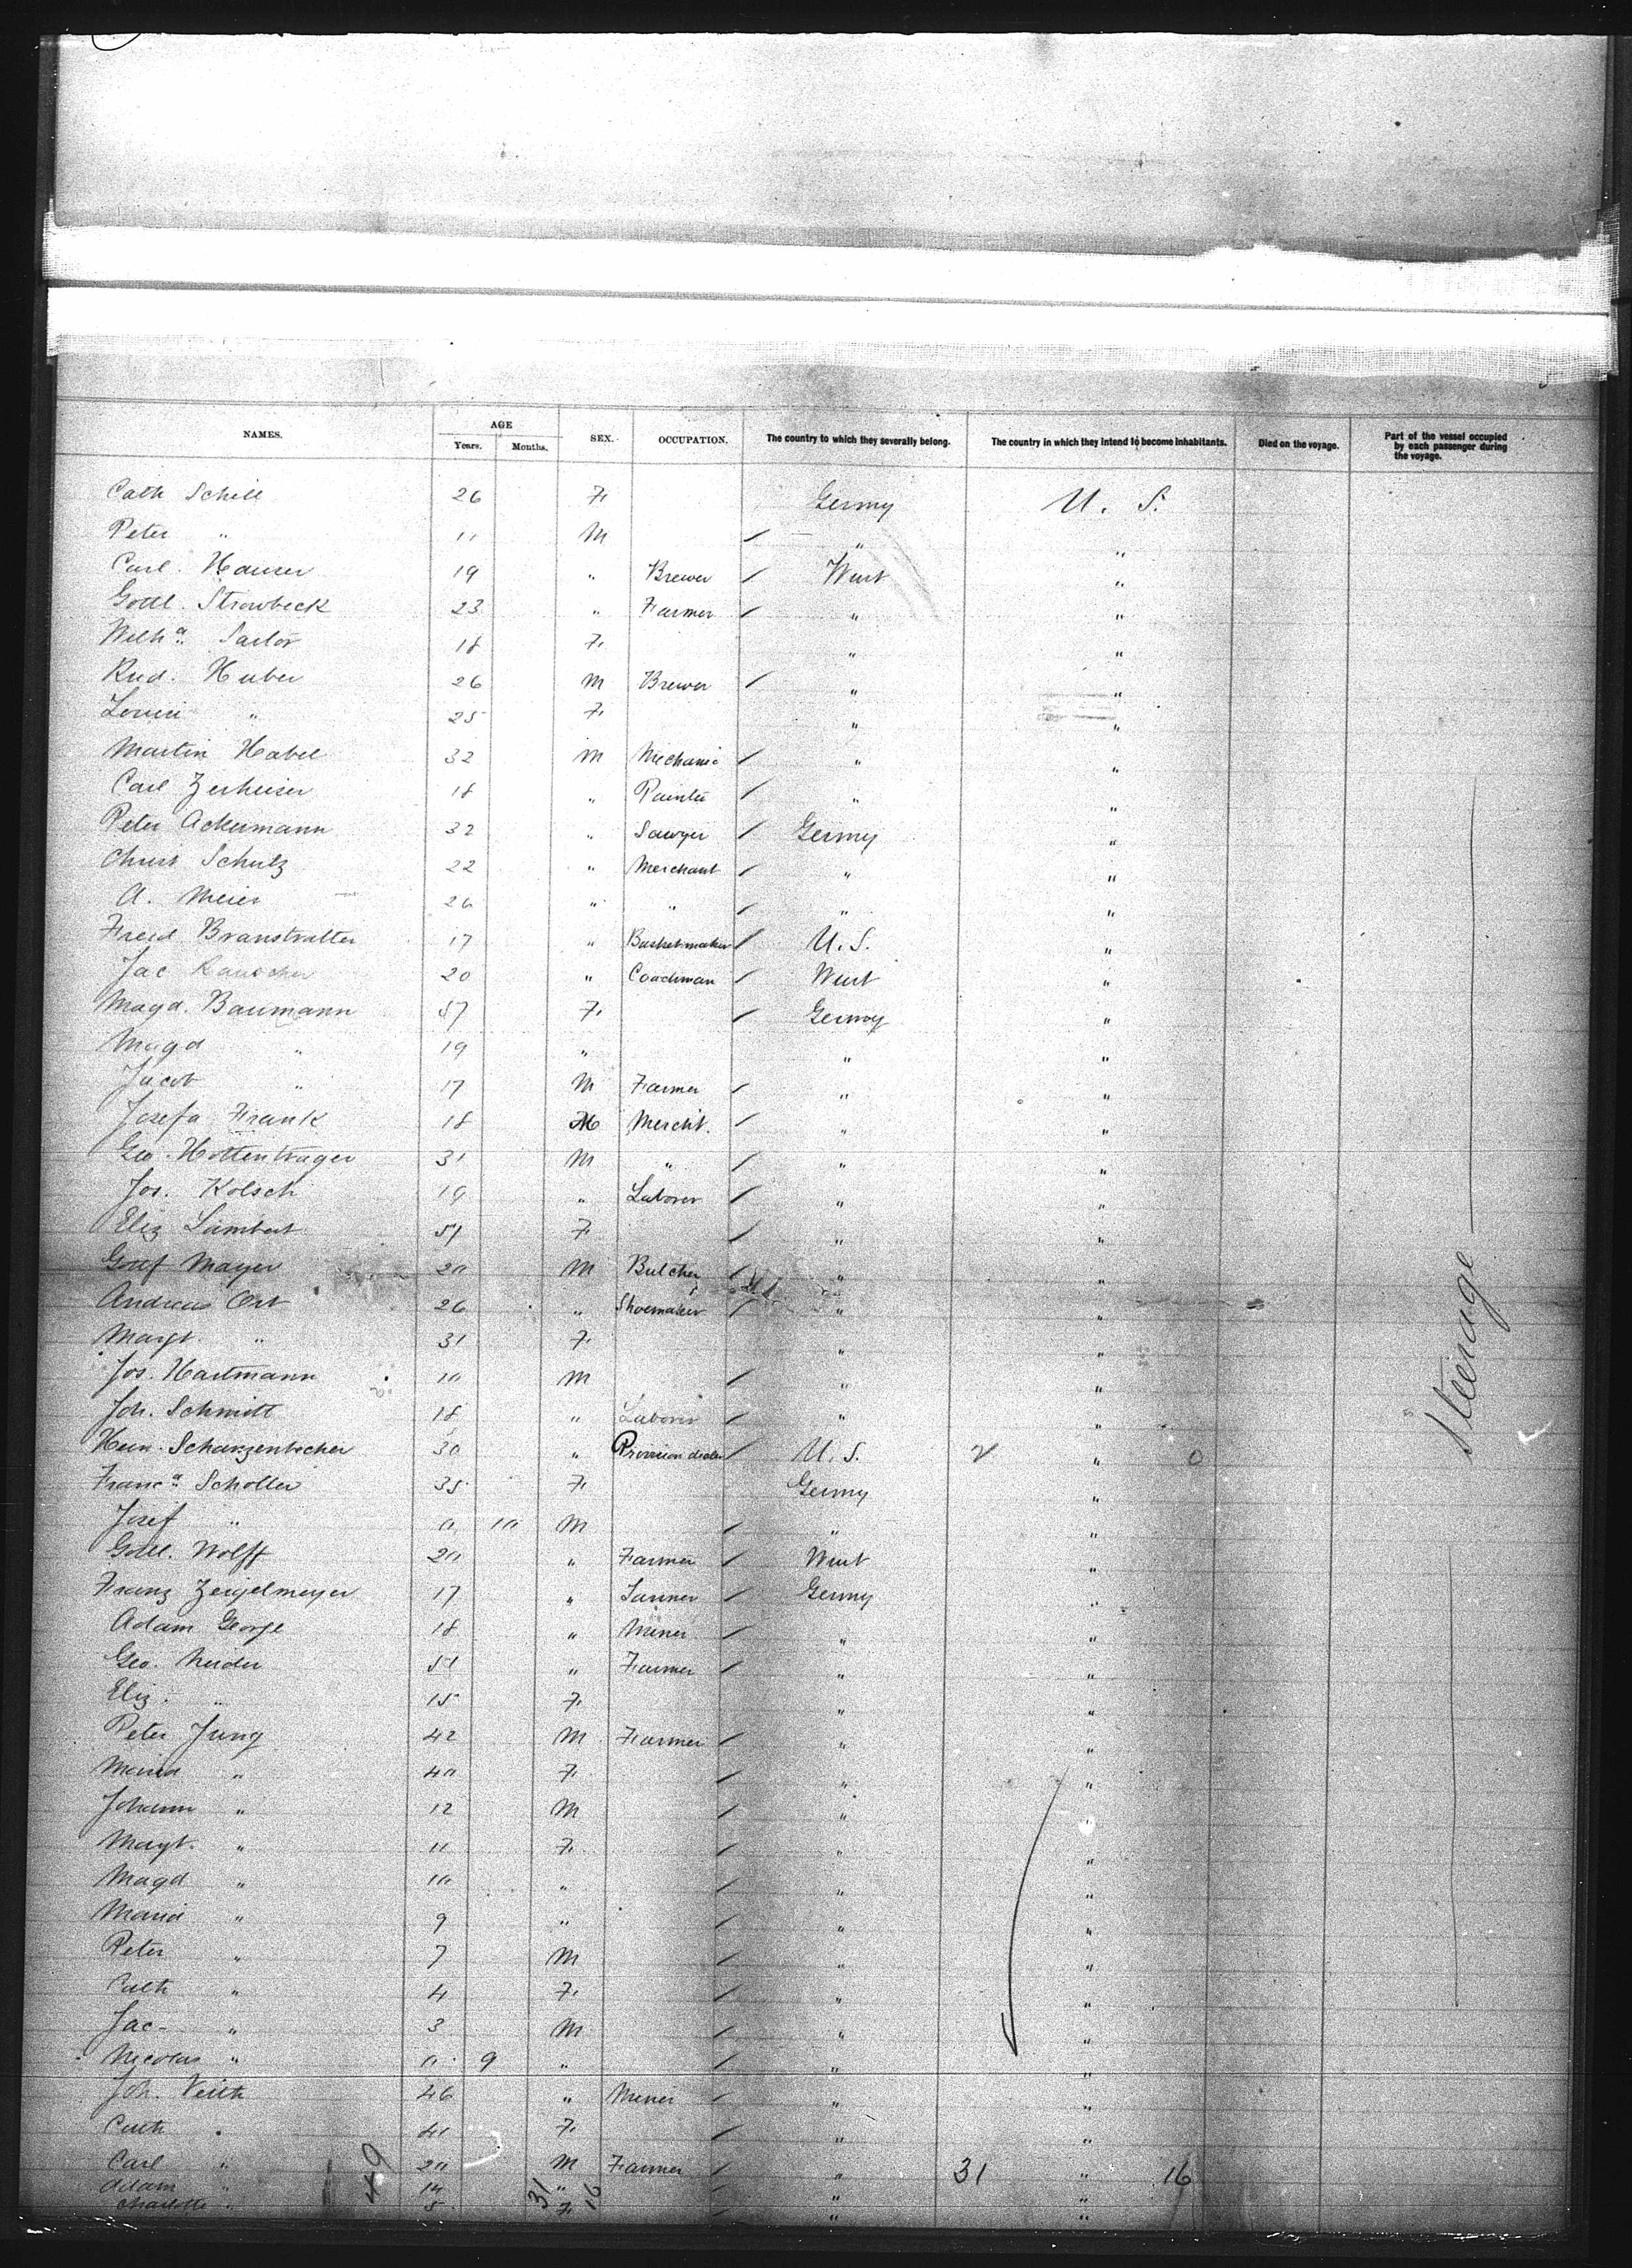 NAMES. AGE SEX. OCCUPATION. The country to which they severally belong. The country in which they intend to become inhabitants. Died on the voyage. Part of the vessel occupied by each passenger during the voyage.
Years. Months.
Cath Schill 26 F. Germy U. S.
Peter " 11 M " "
Carl. Hauser 19 " Brewer Wurt "
Gottl. Strowbeck 23 " Farmer " "
Wilha. Sailor 18 F. " "
Rud. Huber 26 M Brewer " "
Louise " 25 F. " "
Martin Habel 32 M Mechanic " "
Carl Zerheiser 18 " Painter " "
Peter Ackermann 32 " Sawyer Germy "
Christ Schutz 22 " Merchant " "
A. Meier 26 " " " "
Fried Branstratter 17 " Basketmaker U. S. "
Jac Rauscher 20 " Coachman Wurt "
Magd. Baumann 57 F. Germy "
Magd " 19 " " "
Jacob " 17 M Farmer " "
Josefa Frank 18 M Mercht. " "
Geo. Hottentrager 31 M " " "
Jos. Kolsch 19 " Laborer " "
Eliz Lambert 51 F. " "
Gottf Mayer 20 M Butcher " "
Andreas Ort 26 " Shoemaker " "
Margt. " 31 F. " "
Jos. Hartmann 10 M " "
Joh. Schmitt 18 " Laborer " "
Hein. Scharzenbacher 30 " Provision dealer U. S. "
Franca. Scholler 35 F. Germy "
Josef " 0 10 M " "
Gottl. Wolff 20 " Farmer Wurt "
Franz Zeigelmeyer 17 " Tanner Germy "
Adam George 18 " Miner " "
Geo. Neider 51 " Farmer " "
Eliz. " 15 F. " "
Peter Jung 42 M Farmer " "
Maria " 40 F. " "
Johann " 12 M " "
Margt. " 11 F. " "
Magd " 10 " " "
Maria " 9 " " "
Peter " 7 M " "
Cath " 4 F. " "
Jac- " 3 M " "
Nicolas " 0 9 " " "
Joh. Veith 46 " Miner " "
Cath " 41 F. " "
Carl " 20 M Farmer " 31 " 16
Adam " 14 " " "
Charlotte " 5 F. " "
49 31 16
Steerage